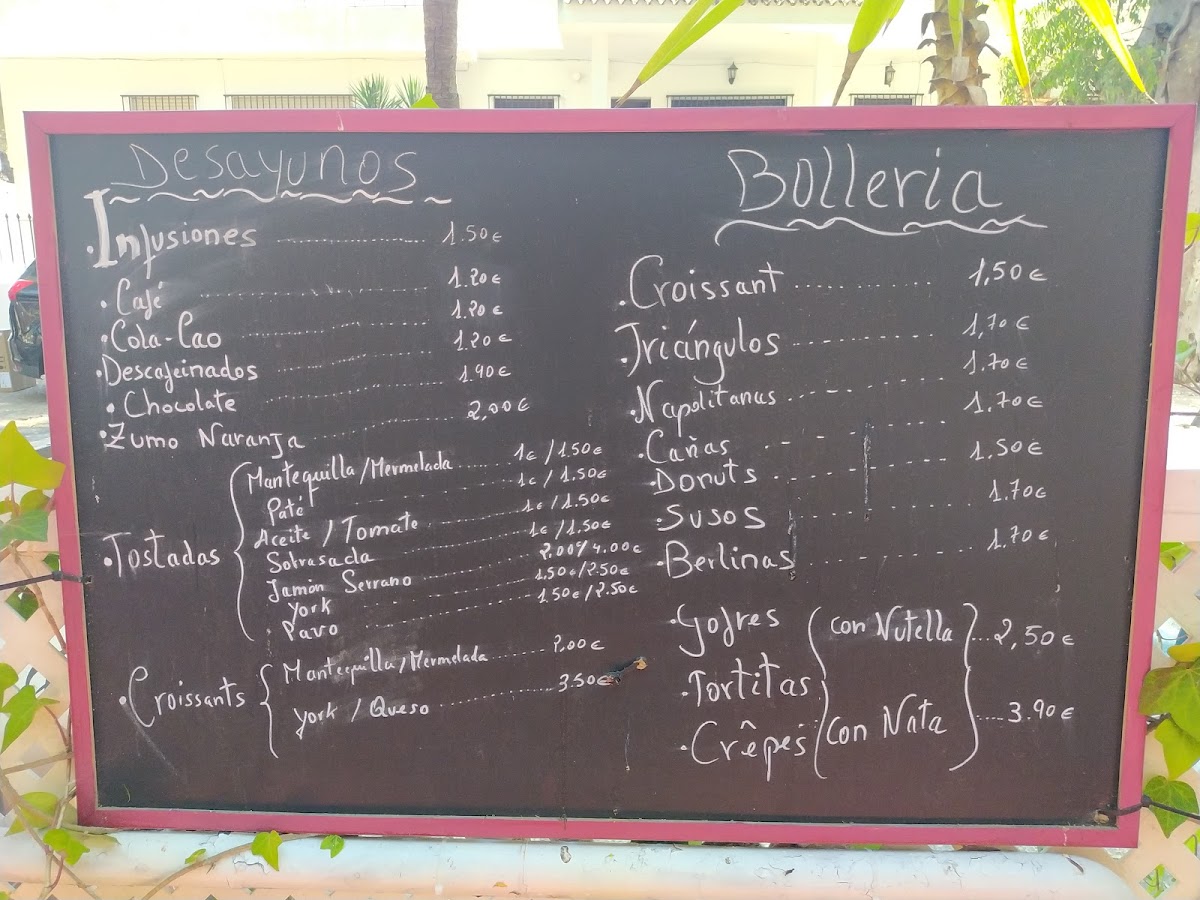 Desayunos
· Infusiones ........ 1.50€
· Café ........ 1.20€
· Cola-Cao ........ 1.20€
· Descafeinados ........ 1.20€
· Chocolate ........ 1.90€
· Zumo Naranja ........ 2,00€
· Tostadas
Mantequilla/Mermelada ..... 1€/1.50€
Paté ........ 1€/1.50€
Aceite/Tomate ........ 1€/1.50€
Sobrasada ........ 1€/1.50€
Jamón Serrano ........ 2.00€/4.00€
York ........ 1.50€/2.50€
Pavo ........ 1.50€/2.50€
· Croissants
Mantequilla/Mermelada ........ 2.00€
York/Queso ........ 3.50€
Bolleria
· Croissant ........ 1,50€
· Triángulos ........ 1,70€
· Napolitanas ........ 1.70€
· Cañas ........ 1.70€
· Donuts ........ 1.50€
· Susos ........ 1.70€
· Berlinas ........ 1.70€
· Gofres
· Tortitas
· Crêpes
con Nutella ... 2,50€
con Nata .... 3.90€